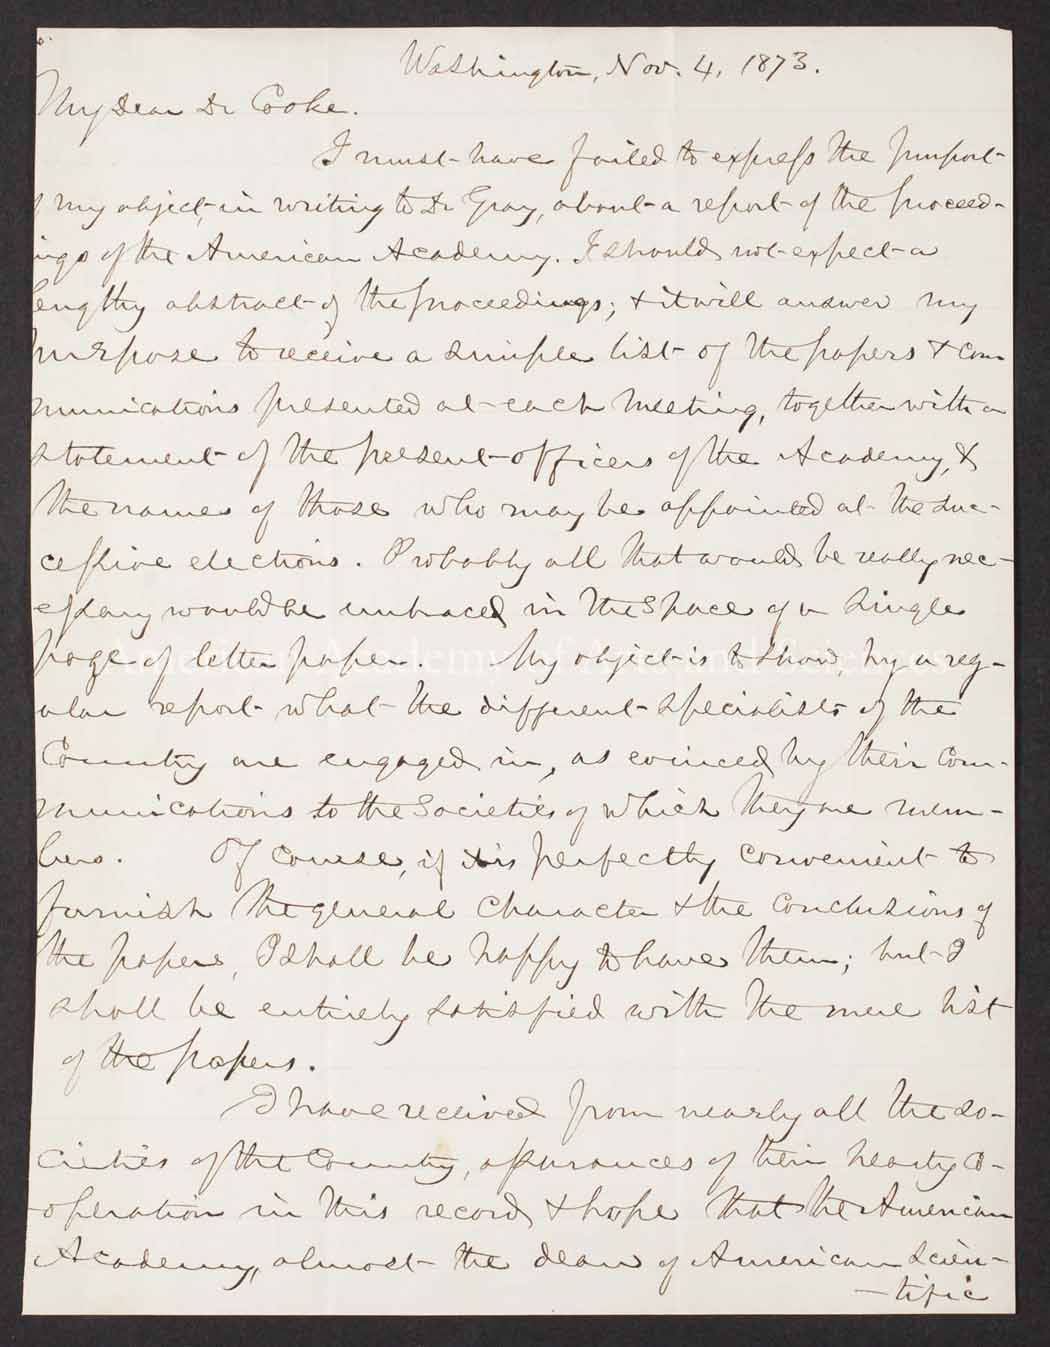 Washington, Nov. 4, 1873.
My Dear Dr Cooke.
I must have failed to express the purport
my object, in writing to Dr Gray, about a report of the Proceed-
ings of the American Academy. I should not expect a
lengthy abstract of the proceedings; & it will answer my
purpose to receive a simple list of the papers & com
munications presented at each meeting, together with a
statement of the present officers of the Academy, &
the names of those who may be appointed at the suc-
cessive elections. Probably all that would be really nec-
essary would be embraced in the space of a single
page of letter paper. My object is to show, by a reg-
ular report what the different specialists of the
Country are engaged in, as evinced by their Com-
munications to the Societies of which they are mem-
bers. Of course, if it is perfectly convenient to
furnish the general character & the conclusions of
the papers, I shall be happy to have them; but I
shall be entirely satisfied with the mere list
of the papers.
I have received from nearly all the So-
cieties of the Country, assurances of their hearty co-
operation in this record & hope that the American
Academy, almost the dean of American Scien-
-tific
American Academy of Arts and Sciences